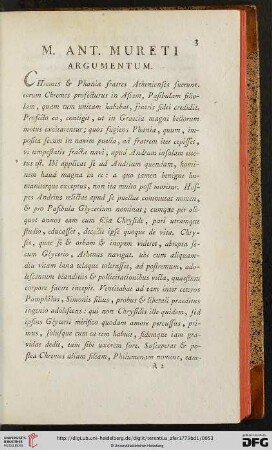 3
M. ANT. MURETI
ARGUMENTUM.
CHremes & Phania fratres Athenienses fuerunt.
eorum Chremes profecturus in Asiam, Pasibulam filio-
lam, quam tum unicam habebat, fratris fidei credidit.
Profecto eo, contigit, ut in Græcia magni bellorum
motus excitarentur; quos fugiens Phania, quum, im-
posita secum in navim puella, ad fratrem iter cepisset,
vi tempestatis fracta navi, apud Andrum insulam ejec-
tus est. Ibi applicat se ad Andrium quendam, homi-
nem haud magna in re: a quo tamen benigne hu-
maniterque exceptus, non ita multo post moritur. Hos-
pes Andrius relictæ apud se puellæ commutat nomen,
& pro Pasibula Glycerium nominat; cumque per ali-
quot annos eam cum filia Chryside, pari utramque
studio, educasset, discessit ipse quoque de vita. Chry-
sis, quæ se & orbam & inopem videret, abrepta se-
cum Glycerio, Athenas navigat. ubi cum aliquam-
diu vitam lana telaque tolerasset, ad postremum, ado-
lescentum blanditiis & pollicitationibus victa, quæstum
corpore facere incepit. Ventitabat ad eam inter ceteros
Pamphilus, Simonis filius, probus & liberali præditus
ingenio adolescens: qui non Chrysidis ille quidem, sed
ipsius Glycerii mirifico quodam amore perculsus, pri-
mus, solusque cum ea rem habuit, fidemque jam gra-
vidæ dedit, eam sibi uxorem fore. Susceperat & po-
stea Chremes aliam filiam, Philumenam nomine, eam-
A 2
http://digi.ub.uni-heidelberg.de/diglit/terentius_afer1779bd1/0053